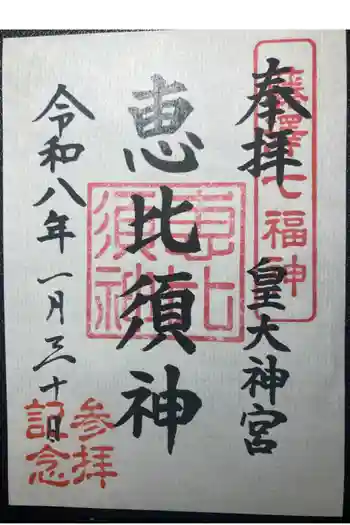 奉拝
藤澤七福神
皇大神宮
恵比須神
恵比須神
令和八年一月三十日
参拝記念